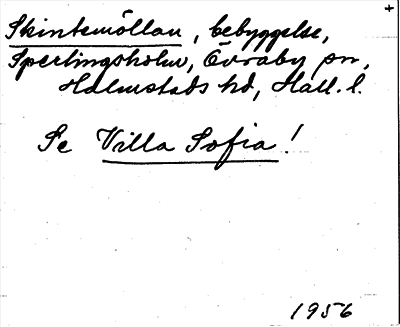 Skintemöllan, bebyggelse,
Sperlingsholm, Övraby sn,
Halmstads hd, Hall. l.
Se Villa Sofia!
1956